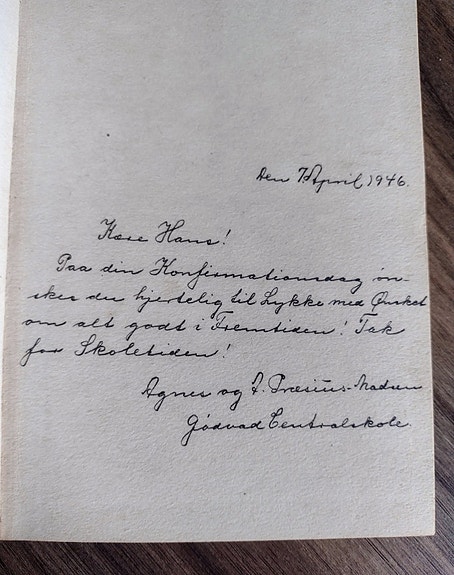 Den 7 April 1946.
Kære Hans!
Paa din Konfirmationsdag øn-
skes du hjertelig til Lykke med Ønsket
om alt godt i Fremtiden! Tak
for Skoletiden!
Agnes og A. Præsius-Madsen
Gødvad Centralskole.